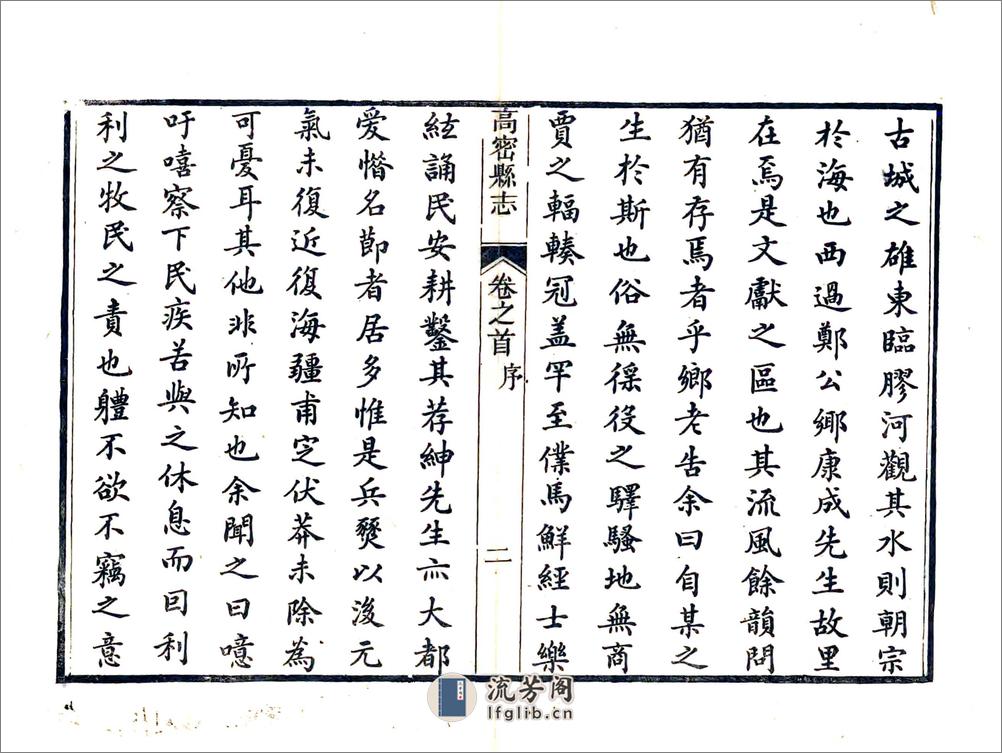 古城之雄東臨膠河觀其水則朝宗
於海也西過鄭公鄉康成先生故里
在焉是文獻之區也其流風餘韻問
猶有存焉者乎鄉老告余曰自某之
生於斯也俗無徭役之驛騷地無商
賈之輻輳冠盖罕至僕馬鮮經士樂
高密縣志
卷之首
序
二
絃誦民安耕鑿其荐紳先生亦大都
愛惜名節者居多惟是兵燹以後元
氣未復近復海疆甫定伏莽未除為
可憂耳其他非所知也余聞之曰噫
吁嘻察下民疾苦與之休息而回利
利之牧民之責也軆不欲不竊之意
流芳阁
lfglib.cn